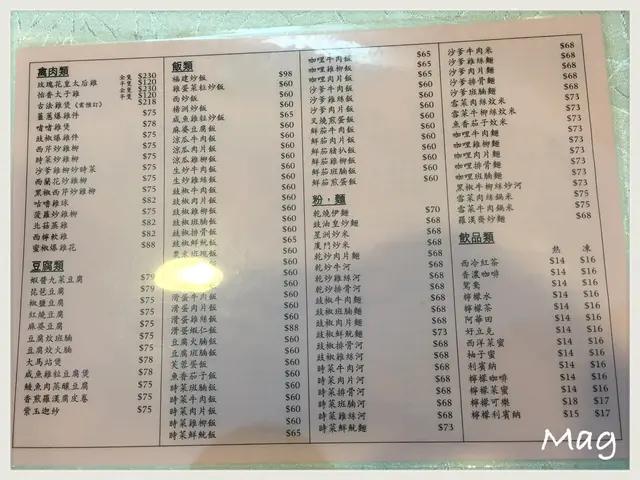 禽肉類
玫瑰花皇太后雞 全隻 $230 半隻 $120
怡香太子雞 全隻 $230 半隻 $120
古法雞煲(需預訂) $218
薑蔥爆雞件 $75
啫啫雞煲 $78
豉椒爆雞件 $75
西芹炒雞柳 $75
時菜炒雞柳 $75
沙爹雞柳炒時菜 $75
西蘭花炒雞柳 $75
黑椒西芹炒雞柳 $75
咕嚕雞球 $82
菠蘿炒雞柳 $75
北菇蒸雞 $82
西檸軟雞 $82
蜜椒爆雞花 $88
豆腐類
蝦醬九菜豆腐 $79
琵琶豆腐 $79
椒鹽豆腐 $75
紅燒豆腐 $75
麻婆豆腐 $75
豆腐炆班腩 $75
豆腐炆火腩 $75
大馬站煲 $78
咸魚雞粒豆腐煲 $78
鯪魚肉蒸釀豆腐 $75
香煎羅漢腐皮卷 $75
紫玉迦紗 $75
飯類
福建炒飯 $98
雞蛋菜粒炒飯 $60
西炒飯 $60
楊洲炒飯 $60
咸魚雞粒炒飯 $65
麻婆豆腐飯 $60
涼瓜牛肉飯 $60
涼瓜肉片飯 $60
涼瓜雞柳飯 $60
生炒牛肉飯 $60
生炒雞絲飯 $60
豉椒牛肉飯 $60
豉椒肉片飯 $60
豉椒雞柳飯 $60
豉椒班腩飯 $60
豉椒排骨飯 $60
豉椒鮮魷飯 $65
$60
滑蛋牛肉飯 $60
滑蛋肉片飯 $60
滑蛋雞絲飯 $60
滑蛋蝦仁飯 $88
豆腐火腩飯 $60
豆腐班腩飯 $60
芙蓉蛋飯 $60
魚香茄子飯 $60
時菜班腩飯 $60
時菜牛肉飯 $60
時菜肉片飯 $60
時菜雞柳飯 $60
時菜鮮魷飯 $65
咖哩牛肉飯 $65
咖哩雞柳飯 $65
咖哩肉片飯 $65
沙爹牛肉飯 $60
沙爹雞絲飯 $60
沙爹肉片飯 $60
叉燒煎蛋飯 $60
鮮茄牛肉飯 $60
鮮茄肉片飯 $60
鮮茄豬扒飯 $60
鮮茄雞柳飯 $60
鮮茄班腩飯 $60
鮮茄煎蛋飯 $60
粉，麵
乾燒伊麵 $70
豉油皇炒麵 $68
星洲炒米 $68
廈門炒米 $68
乾炒肉片麵 $68
乾炒牛河 $68
乾炒雞絲河 $68
豉椒牛肉麵 $68
豉椒班腩麵 $68
豉椒肉片麵 $68
豉椒鮮魷麵 $73
豉椒排骨河 $68
豉椒雞絲河 $68
時菜牛肉河 $68
時菜肉片河 $68
時菜排骨河 $68
時菜班腩河 $68
時菜雞絲河 $68
時菜鮮魷麵 $73
沙爹牛肉米 $68
沙爹雞絲麵 $68
沙爹肉片麵 $68
沙爹排骨麵 $68
沙爹班腩麵 $68
雪菜肉絲炆米 $73
雪菜牛柳絲炆米 $73
魚香茄子炆米 $73
咖哩牛肉麵 $73
咖哩雞柳麵 $73
咖哩肉片麵 $73
咖哩排骨麵 $73
咖哩班腩麵 $73
黑椒牛柳絲炒河 $73
雪菜肉絲鍋米 $75
雪菜牛肉鍋米 $75
羅漢齋炒麵 $68
飲品類
熱 凍
西冷紅茶 $14 $16
香濃咖啡 $14 $16
鴛鴦 $14 $16
檸檬水 $14 $16
檸檬茶 $14 $16
阿華田 $14 $16
好立克 $14 $16
西洋菜蜜 $14 $16
柚子蜜 $14 $16
利賓納 $14 $16
檸檬咖啡 $14 $16
檸檬菜蜜 $14 $16
檸檬可樂 $18 $17
檸檬利賓納 $15 $17
Mag